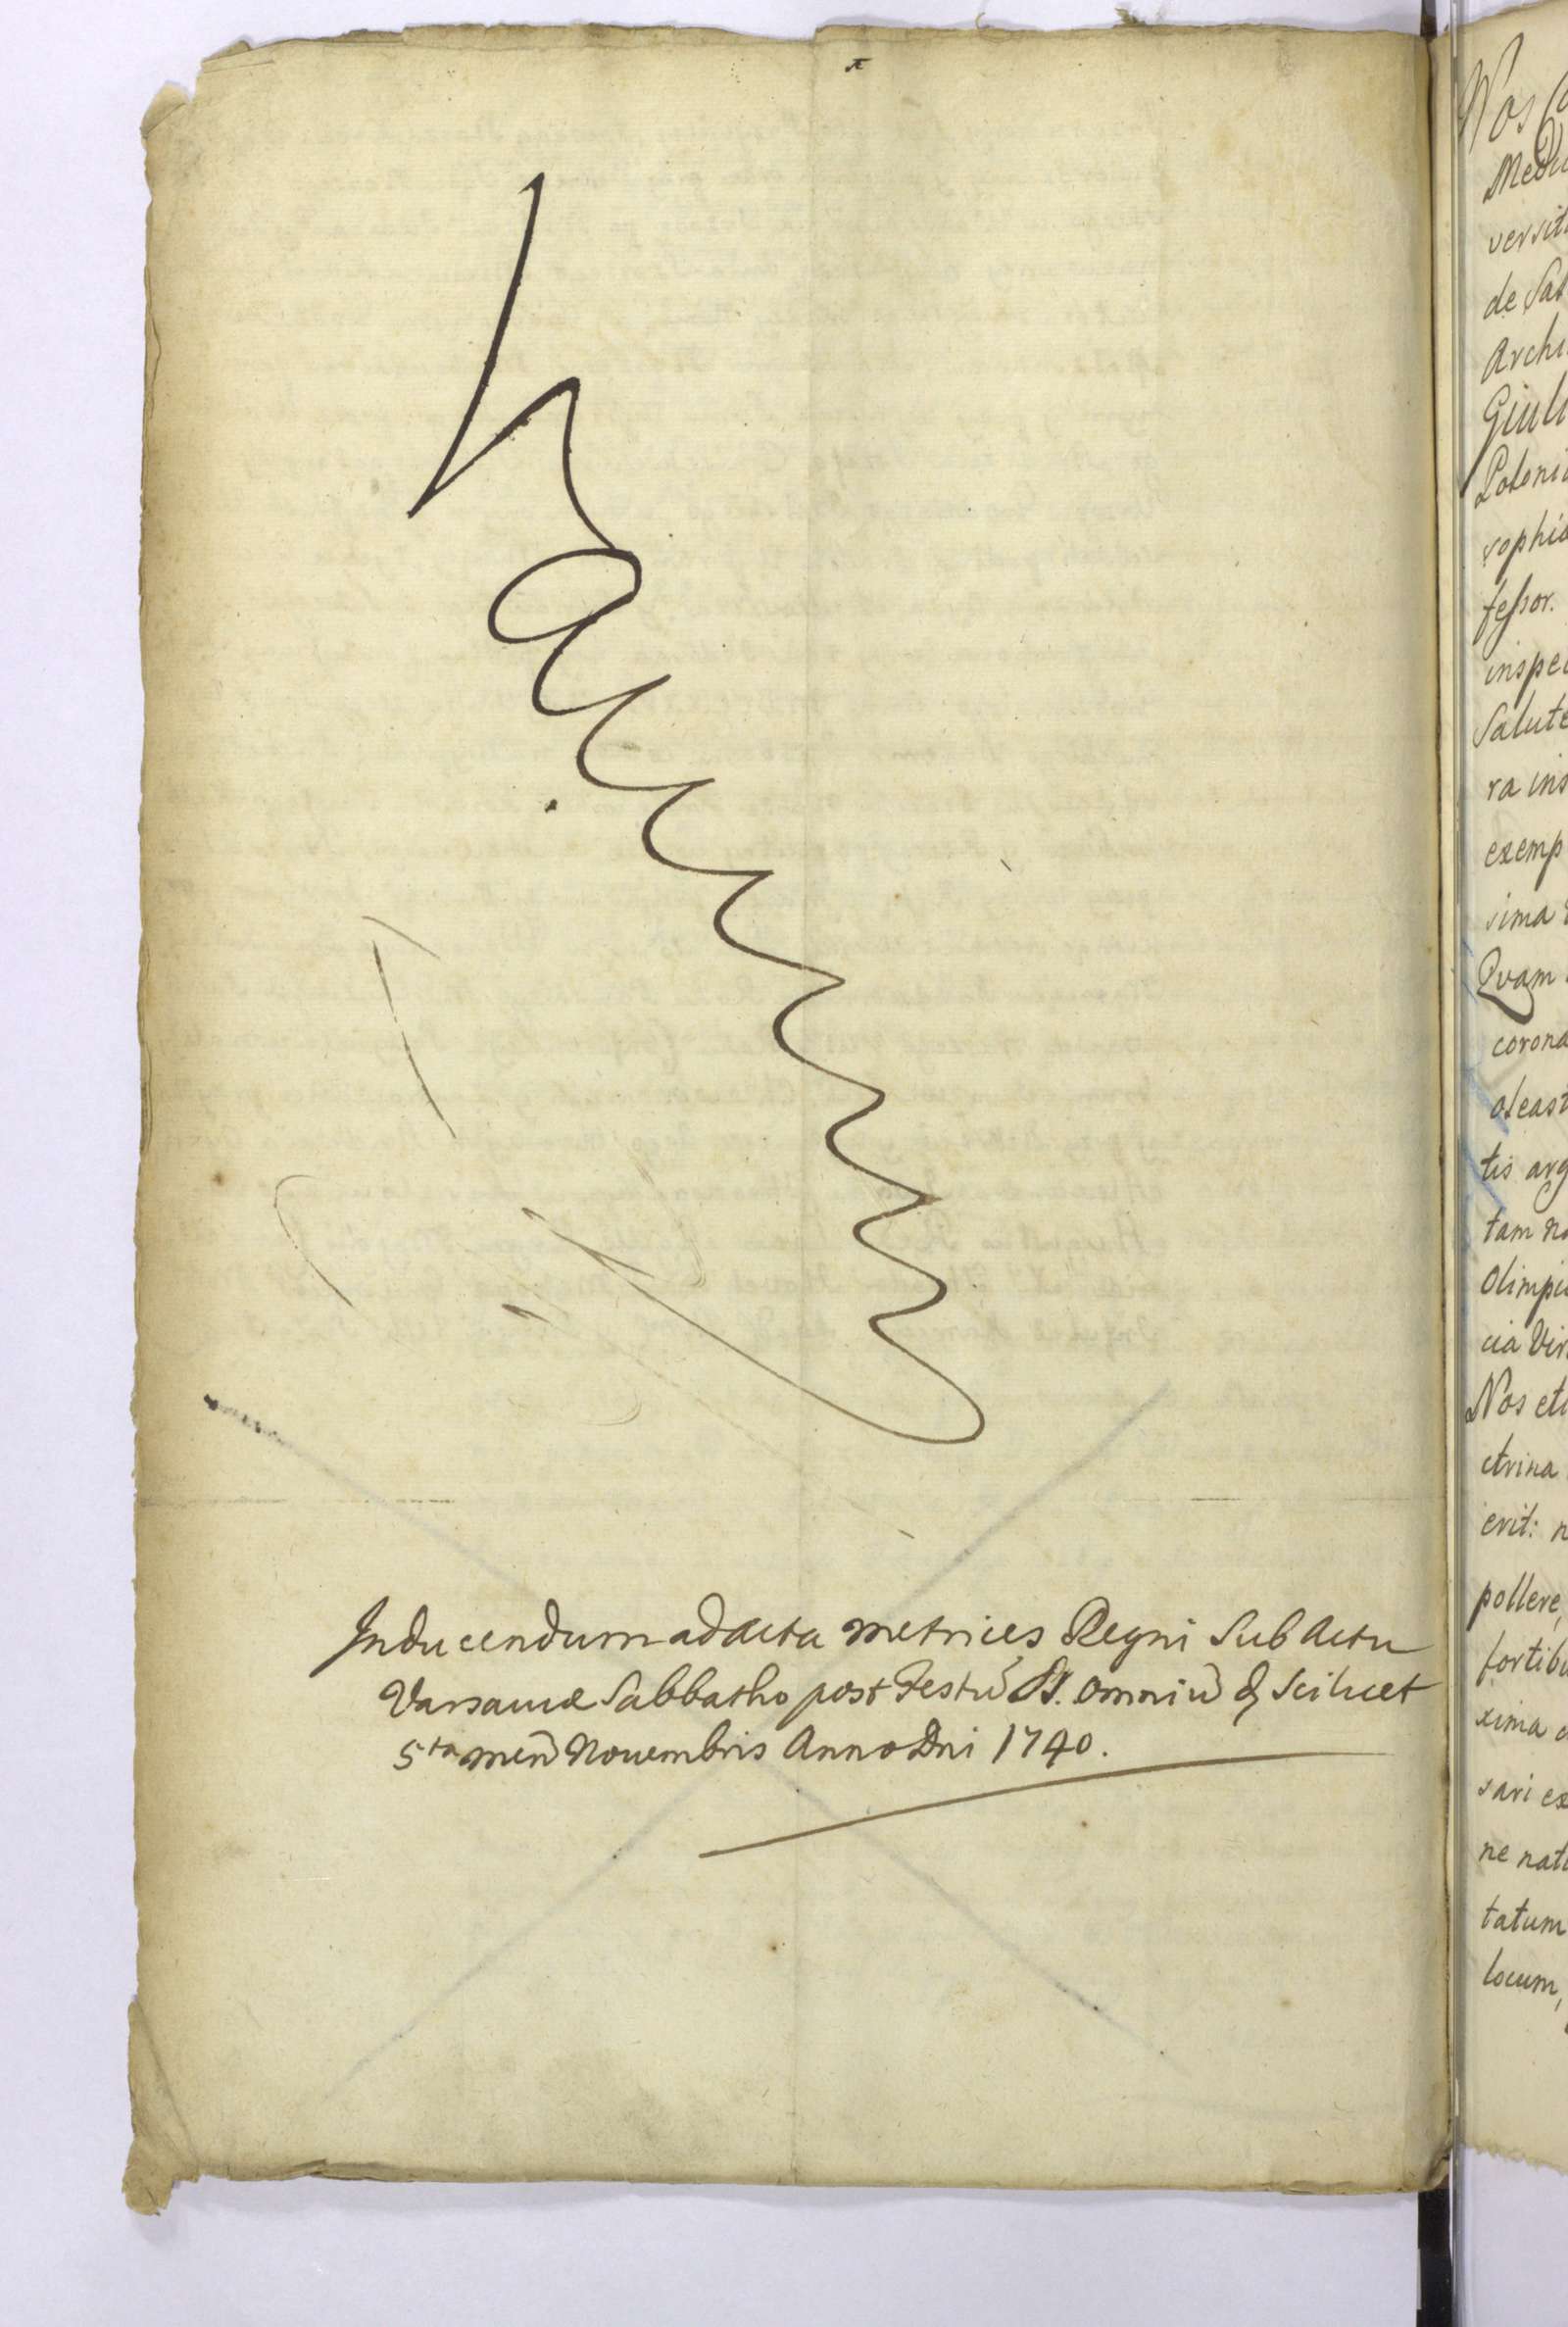 Inducendum ad acta metrices Regni Sub Actu
Varsaviæ Sabbatho post Festū SS. omniū d Scilicet
5ta men Novembris Anno Dni 1740.
Nos
versit
de Sa
Archi
Giuli
Poloni
sophia
fessor.
inspe
Salute
ra ins
exemp
sima
Qvam
corona
oleast
tis arg
tam no
Olimpi
cia Vir
Nos eti
ctrina
erit: n
pollere,
fortibu
xima
sari ex
ne nat
tatum
locum,